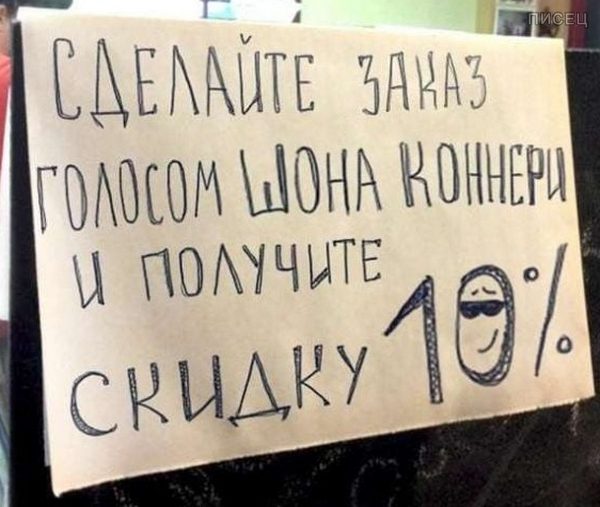 писец
СДЕЛАЙТЕ ЗАКАЗ
ГОЛОСОМ ШОНА КОННЕРИ
И ПОЛУЧИТЕ
СКИДКУ 10%